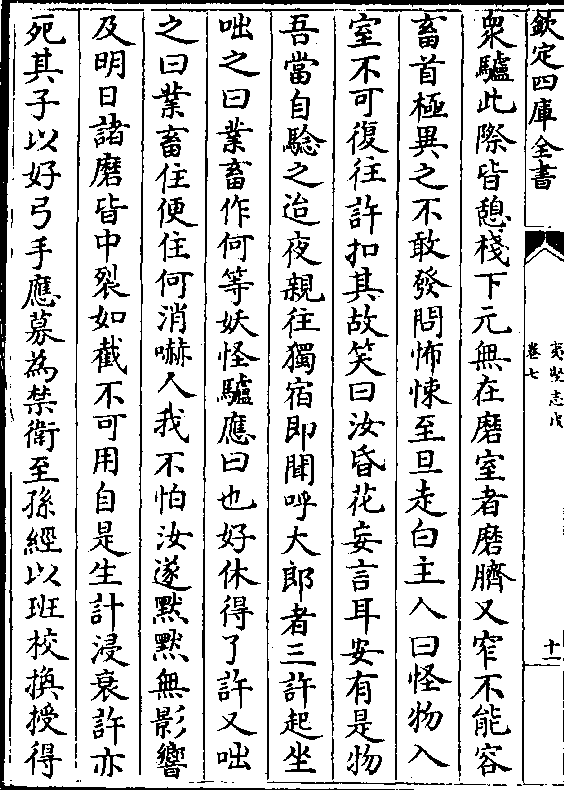 欽定四庫全書
夷堅志戊
卷七
十一
衆驢此際皆憩棧下元無在磨室者磨臍又窄不能容
畜首極異之不敢發問怖悚至旦走白主人曰怪物入
室不可復往許扣其故笑曰汝昏花妄言耳安有是物
吾當自騐之迨夜親往獨宿即聞呼大郎者三許起坐
咄之曰業畜作何等妖怪驢應曰也好休得了許又咄
之曰業畜住便住何消嚇人我不怕汝遂默默無影響
及明日諸磨皆中裂如截不可用自是生計浸衰許亦
死其子以好弓手應募為禁衛至孫經以班校換授得